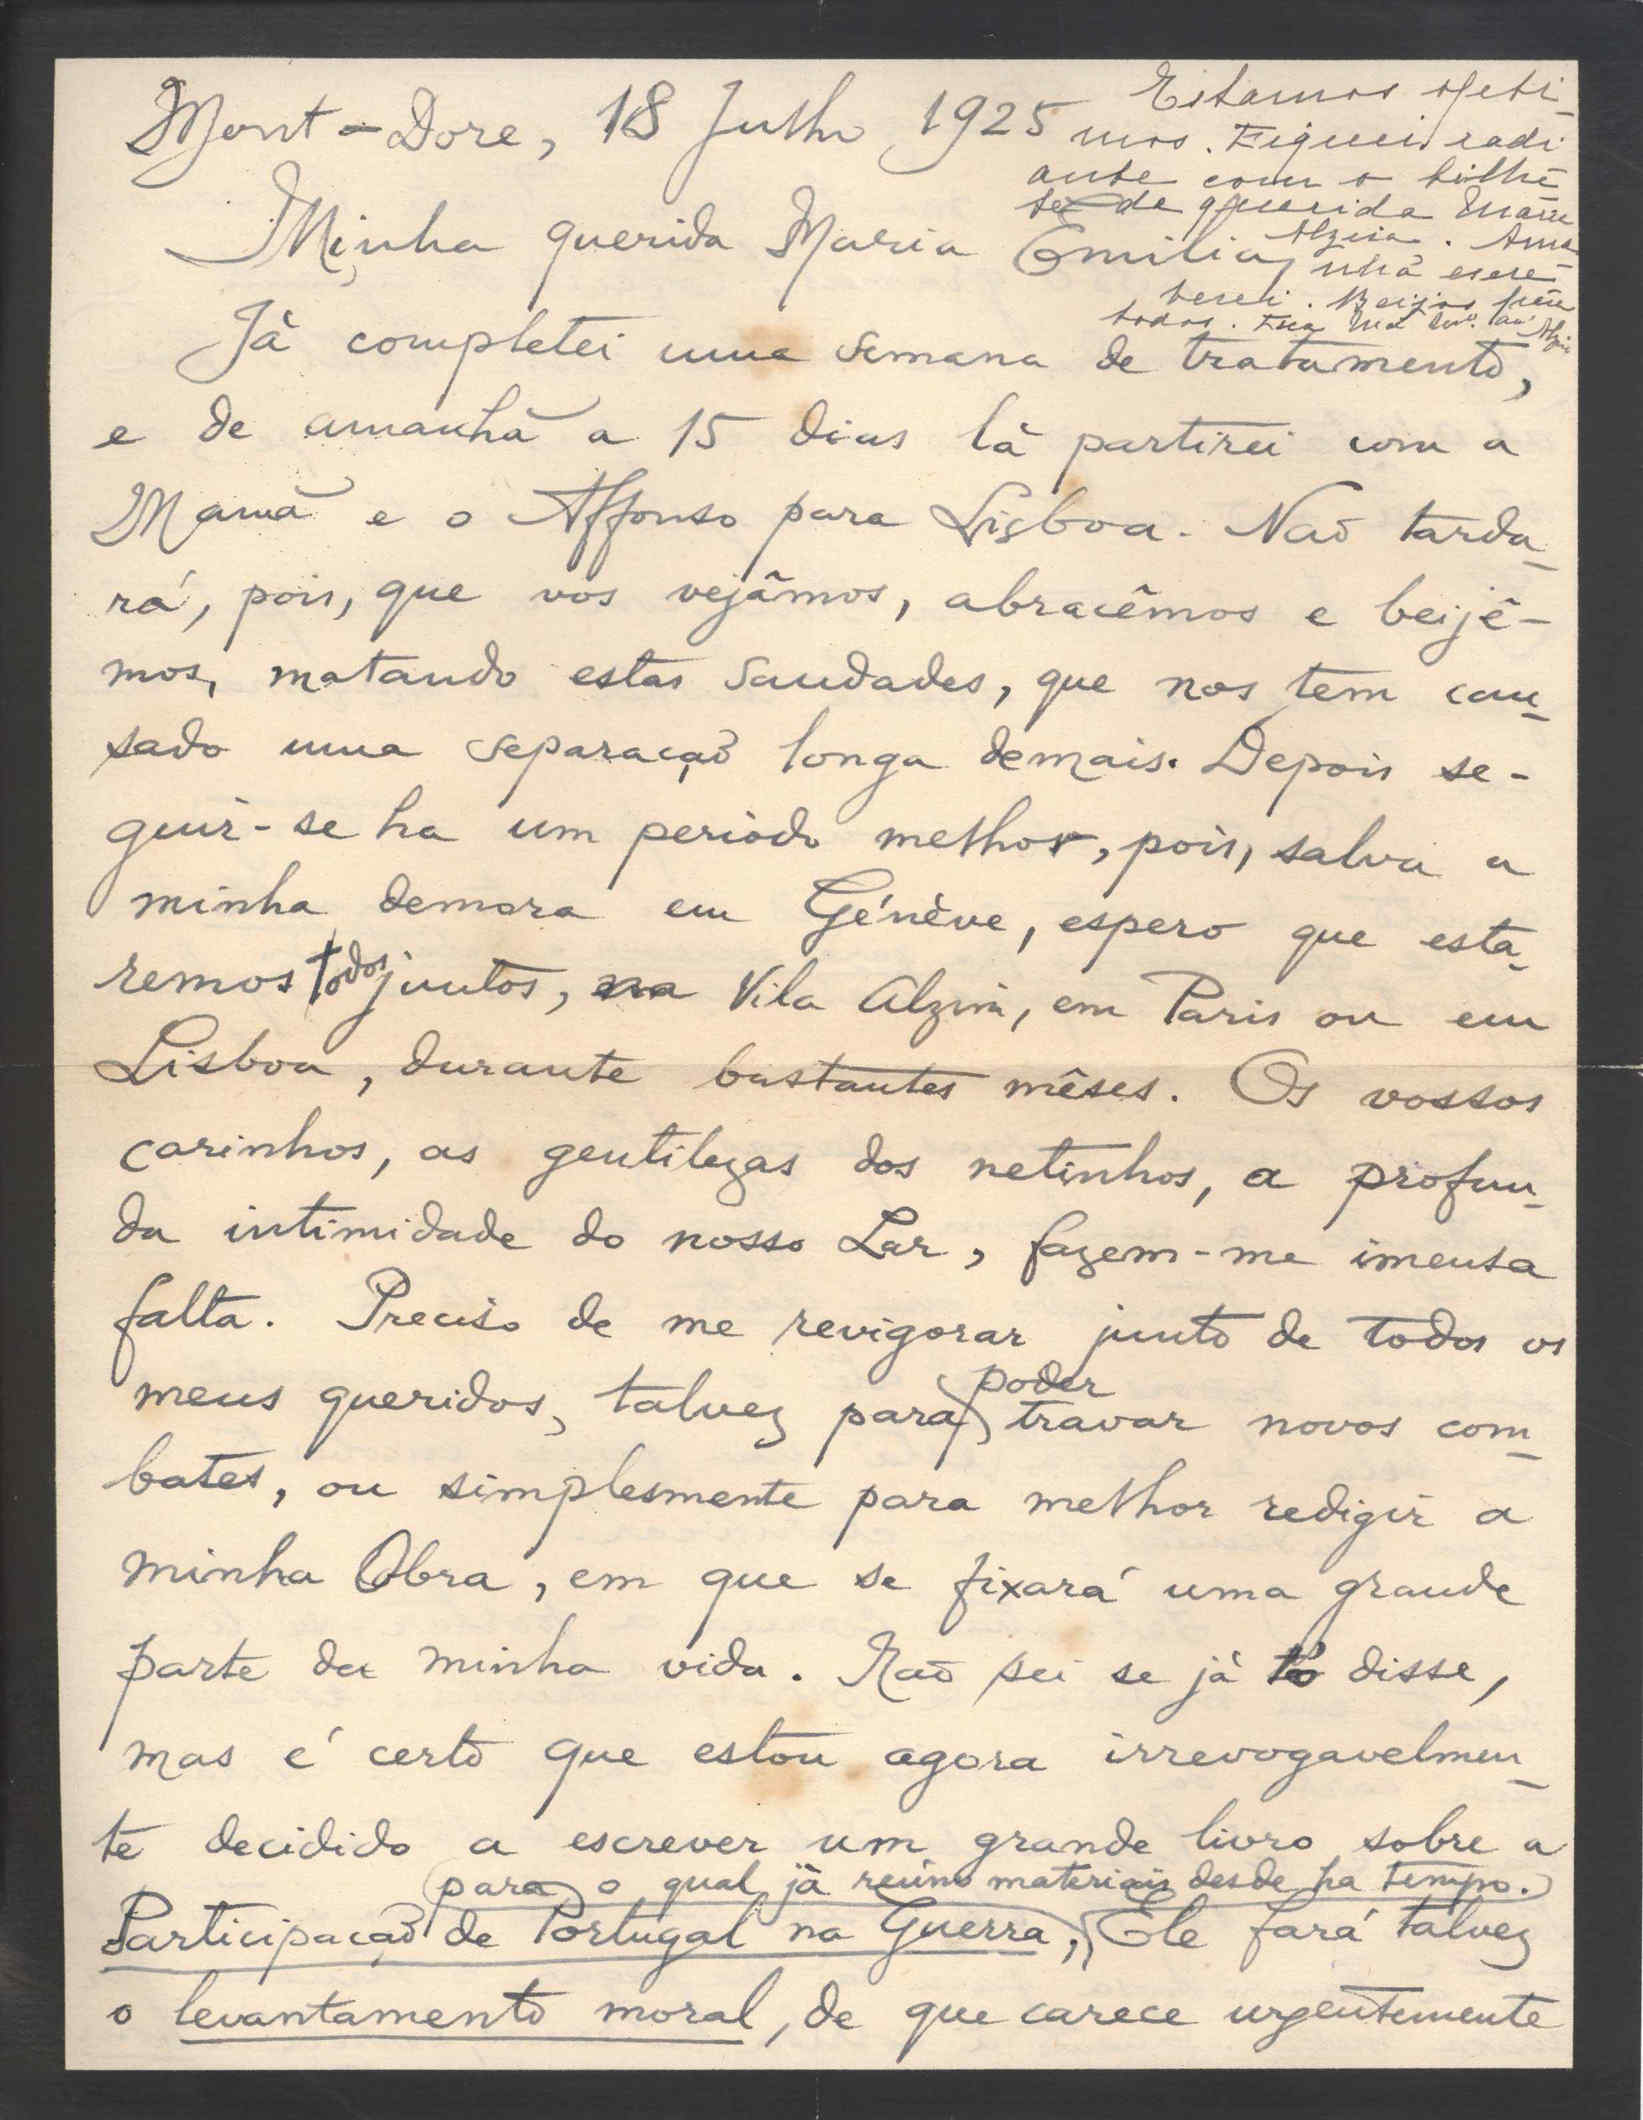 Mont-Dore, 18 Julho 1925
Estamos opti-
mos. Fiquei radi
ante com o bilhe
te de querida Marie
Alzira. Ama
nhã escre-
verei. Beijos para
todos.
Minha querida Maria Emilia,
Já completei uma semana de tratamento,
e de amanhã a 15 dias lá partirei com a
Mamã e o Affonso para Lisboa. Não tarda-
rá, pois, que vos vejâmos, abracêmos e beijê-
mos, matando estas saudades, que nos tem cau-
sado uma separação longa demais. Depois se-
guir-se ha um periodo melhor, pois, salva a
minha demora em Génève, espero que esta-
remos todos juntos, na Vila Alzira, em Paris ou em
Lisboa, durante bastantes mêses. Os vossos
carinhos, as gentilezas dos netinhos, a profun-
da intimidade do nosso Lar, fazem-me imensa
falta. Preciso de me revigorar junto de todos os
meus queridos, talvez para poder travar novos com-
bates, ou simplesmente para melhor redigir a
minha Obra, em que se fixará uma grande
parte da minha vida. Não sei se já to disse,
mas é certo que estou agora irrevogavelmen-
te decidido a escrever um grande livro sobre a
para o qual já reúno materiais desde ha tempo.
Participação de Portugal na Guerra, Ele fará talvez
o levantamento moral, de que carece urgentemente